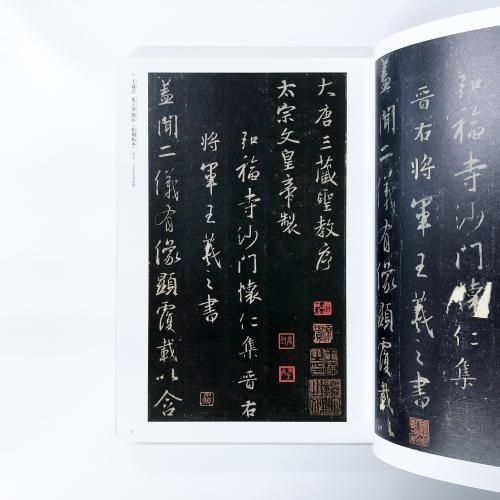 大唐三藏聖教序
太宗文皇帝製
弘福寺沙門懷仁集晉右
將軍王羲之書
蓋聞二儀有像顯覆載以含
弘福寺沙門懷仁集
晉右將軍王羲之書
蓋聞二儀有像顯覆載以